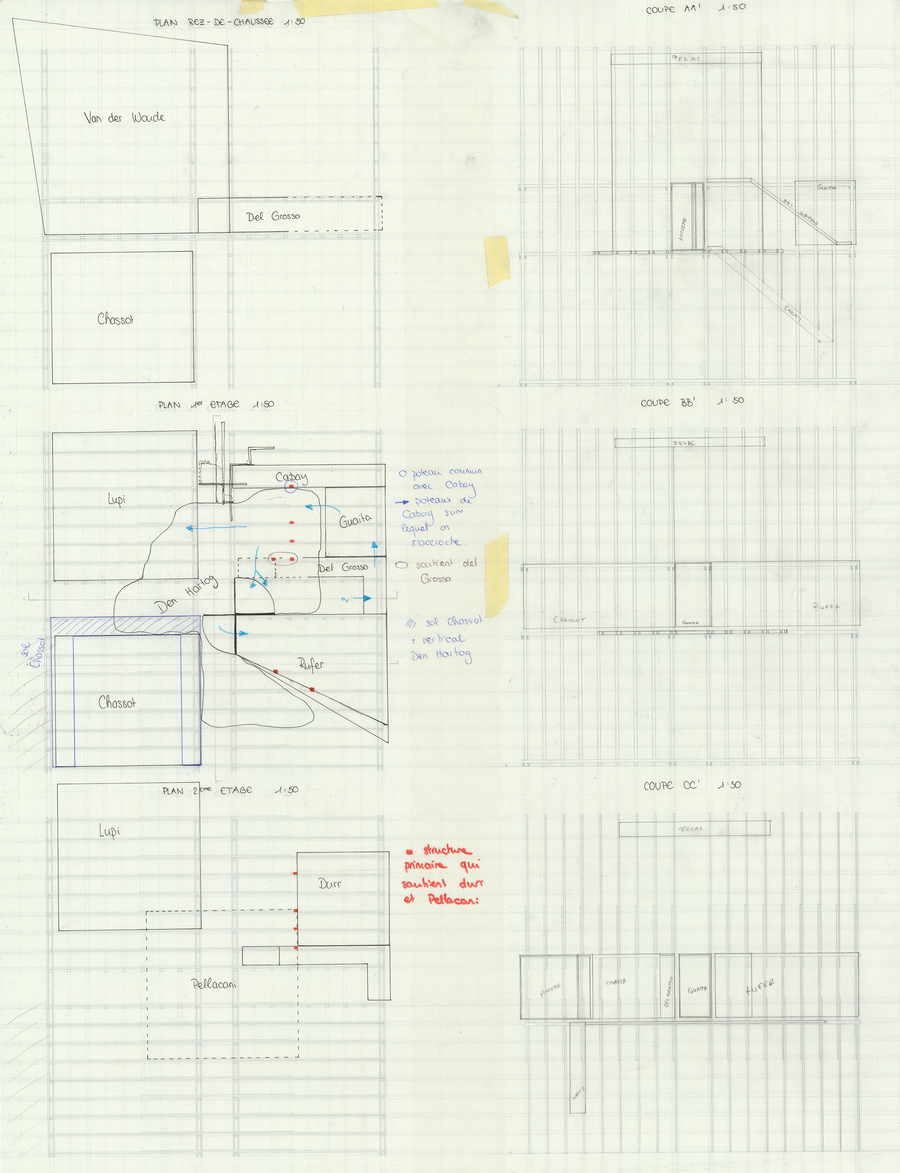 PLAN REZ-DE-CHAUSSEE 1:50
Van der Woude
Del Grosso
Chassot
PLAN 1er ETAGE 1:50
Lupi
Cabay
Guaita
Del Grosso
Den Hartog
Rufer
sol
Chassot
Chassot
O poteau commun
avec Cabay
→ poteaux de
Cabay sur
lequel on
s'accroche.
O soutient del
Grosso
sol Chassot
+ vertical
Den Hartog
PLAN 2eme ETAGE 1:50
Lupi
Durr
Pellacani
structure
primaire qui
soutient durr
et Pellacani
COUPE AA' 1:50
PELAC
GUAITA
DEL GROSSO
CABAY
COUPE BB' 1:50
PELAC
CHASSOT
RUFER
COUPE CC' 1:50
PELAC
DEL GROSSO
GUAITA
RUFER